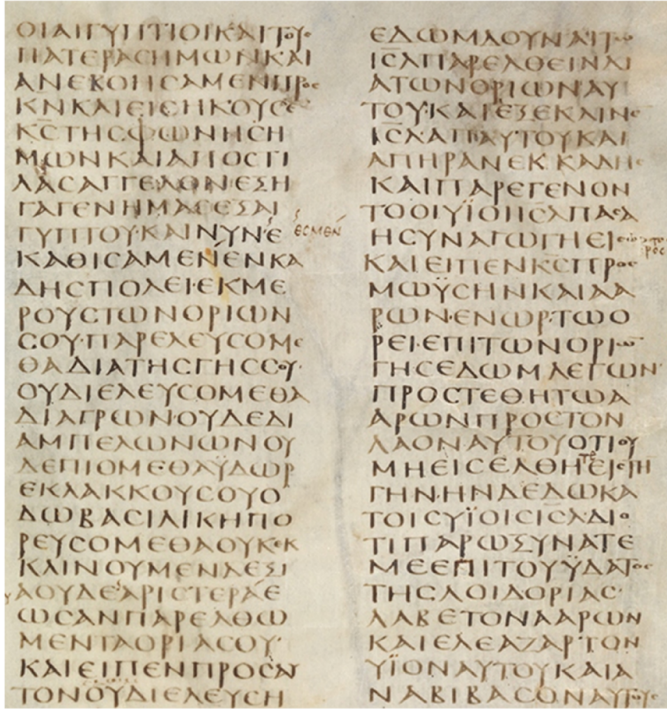 ΟΙΑΙΓΥΠΤΙΟΙΚΑΙΤΟΥ
ΠΑΤΕΡΑΣΗΜΩΝΚΑΙ
ΑΝΕΒΟΗΣΑΜΕΝΠΡΟΣ
ΚΝΚΑΙΕΙΣΗΚΟΥΣΕ
ΚΣΤΗΣΦΩΝΗΣΗ
ΜΩΝΚΑΙΑΠΟΣΤΙ
ΛΑΣΑΓΓΕΛΟΝΕΞΗ
ΓΑΓΕΝΗΜΑΣΕΞΑΙ
ΓΥΠΤΟΥ·ΚΑΙΝΥΝΕ ΕΣΜΕΝ
ΚΑΘΙΣΑΜΕΝΕΝΚΑ
ΔΗΣΠΟΛΕΙ·ΕΚΜΕ
ΡΟΥΣΤΩΝΟΡΙΩΝ
ΣΟΥ·ΠΑΡΕΛΕΥΣΟΜΕ
ΘΑΔΙΑΤΗΣΓΗΣΣΟΥ·
ΟΥΔΙΕΛΕΥΣΟΜΕΘΑ
ΔΙΑΓΡΩΝΟΥΔΕΔΙ
ΑΜΠΕΛΩΝΩΝΟΥ
ΔΕΠΙΟΜΕΘΑΫΔΩΡ
ΕΚΛΑΚΚΟΥΣΟΥΟ
ΔΩΒΑΣΙΛΙΚΗΠΟ
ΡΕΥΣΟΜΕΘΑΟΥΚ·Κ
ΚΛΙΝΟΥΜΕΝΔΕΞΙ
ΑΟΥΔΕΑΡΙΣΤΕΡΑΕ
ΩΣΑΝΠΑΡΕΛΘΩ
ΜΕΝΤΑΟΡΙΑΣΟΥ·
ΚΑΙΕΙΠΕΝΠΡΟΣΑΥ
ΤΟΝΟΥΔΙΕΛΕΥΣΗ
ΕΔΩΜΔΟΥΝΑΙΤΩ
ΙΣΛΠΑΡΕΛΘΕΙΝΔΙ
ΑΤΩΝΟΡΙΩΝΑΥ
ΤΟΥ·ΚΑΙΕΞΕΚΛΙΝΕ
ΙΣΛΑΠΑΥΤΟΥΚΑΙ
ΑΠΗΡΑΝΕΚΚΑΔΗΣ
ΚΑΙΠΑΡΕΓΕΝΟΝ
ΤΟΟΙΫΙΟΙΙΣΛΠΑΣΑ
ΗΣΥΝΑΓΩΓΗΕΙΣ
ΚΑΙΕΙΠΕΝΚΣΠΡΟΣ
ΜΩΫΣΗΝΚΑΙΑΑ
ΡΩΝ·ΕΝΩΡΤΩΟ
ΡΕΙ·ΕΠΙΤΩΝΟΡΙΩΝ
ΓΗΣΕΔΩΜΛΕΓΩΝ·
ΠΡΟΣΤΕΘΗΤΩΑ
ΑΡΩΝΠΡΟΣΤΟΝ
ΛΑΟΝΑΥΤΟΥΟΤΙΟΥ
ΜΗΕΙΣΕΛΘΗΤΕΕΙΣΤΗ
ΓΗΝ·ΗΝΔΕΔΩΚΑ
ΤΟΙΣΥΪΟΙΣΙΣΛΔΙΟ
ΤΙΠΑΡΩΞΥΝΑΤΕ
ΜΕΕΠΙΤΟΥΫΔΑΤΟΣ
ΤΗΣΛΟΙΔΟΡΙΑΣ·
ΛΑΒΕΤΟΝΑΑΡΩΝ
ΚΑΙΕΛΕΑΖΑΡΤΟΝ
ΥΪΟΝΑΥΤΟΥΚΑΙΑ
ΝΑΒΙΒΑΣΟΝΑΥΤΟΥΣ